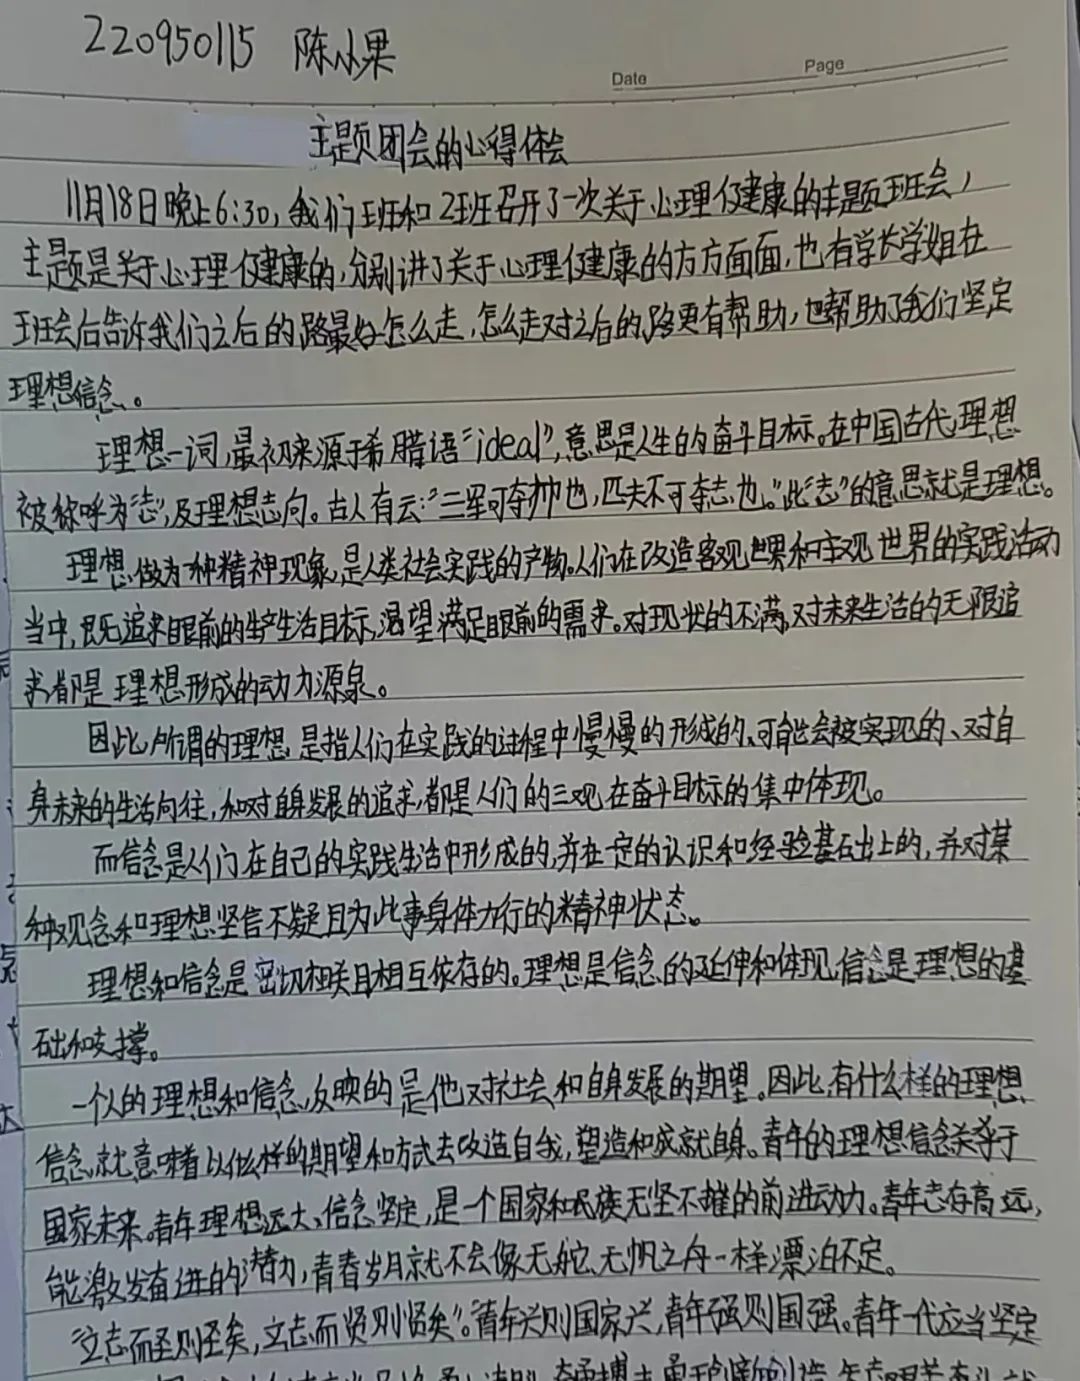 220950115 陈小果
Date Page
主题团会的心得体会
11月18日晚上6:30,我们1班和2班召开了一次关于心理健康的主题班会,
主题是关于心理健康的,分别讲了关于心理健康的方方面面,也有学长学姐在
班会后告诉我们之后的路最好怎么走,怎么走对之后的路更有帮助,也帮助了我们坚定
理想信念。
理想一词,最初来源于希腊语“ideal”,意思是人生的奋斗目标。在中国古代,理想
被称呼为“志”,及理想志向。古人有云:“三军可夺帅也,匹夫不可夺志也。”此“志”的意思就是理想。
理想,做为一种精神现象,是人类社会实践的产物。人们在改造客观世界和主观世界的实践活动
当中,既追求眼前的生产生活目标,渴望满足眼前的需求。对现状的不满,对未来生活的无限追
求都是理想形成的动力源泉。
因此,所谓的理想,是指人们在实践的过程中慢慢的形成的、可能会被实现的、对自
身未来的生活向往,和对自身发展的追求,都是人们的三观在奋斗目标的集中体现。
而信念是人们在自己的实践生活中形成的,并在一定的认识和经验基础上的,并对某
种观念和理想坚信不疑且为此事身体力行的精神状态。
理想和信念是密切相关且相互依存的。理想是信念的延伸和体现,信念是理想的基
础和支撑。
一个人的理想和信念,反映的是他对社会和自身发展的期望。因此,有什么样的理想
信念,就意味着以什么样的期望和方式去改造自我,塑造和成就自身。青年的理想信念关乎于
国家未来。青年理想远大、信念坚定,是一个国家和民族无坚不摧的前进动力。青年志存高远,
能激发奋进的潜力,青春岁月就不会像无舵、无帆之舟一样漂泊不定。
“立志而圣则圣矣,立志而贤则贤矣”。青年兴则国家兴,青年强则国强。青年一代应当坚定